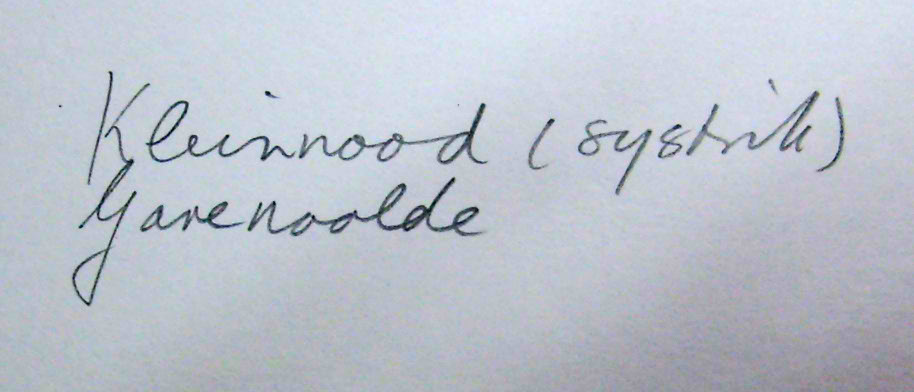 Kleinnood (systrik)
Garenoolde